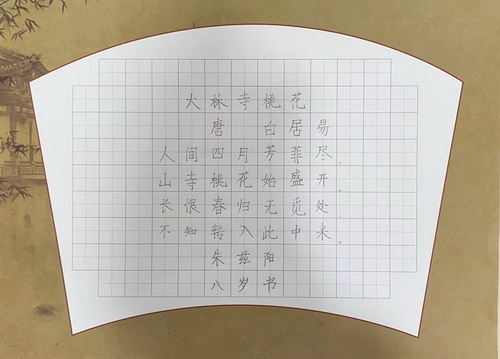 大林寺桃花
唐 白居易
人间四月芳菲尽。
山寺桃花始盛开。
长恨春归无觅处。
不知转入此中来。
朱兹阳
八岁书